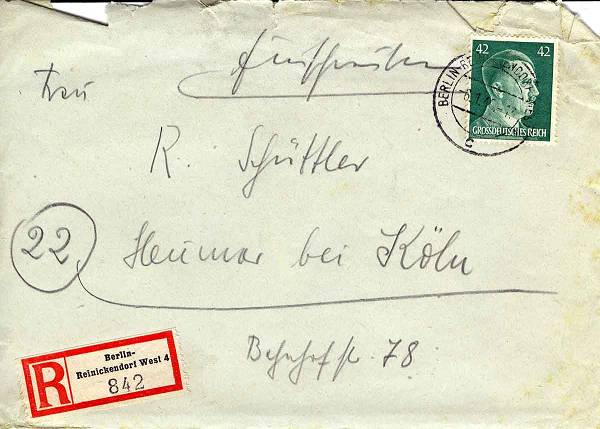 Einschreiben
42 42
GROSSDEUTSCHES REICH
BERLIN-
c
Frau
R. Schüttler
22 Heumar bei Köln
Bahnhofstr. 78
R Berlin-
Reinickendorf West 4
842